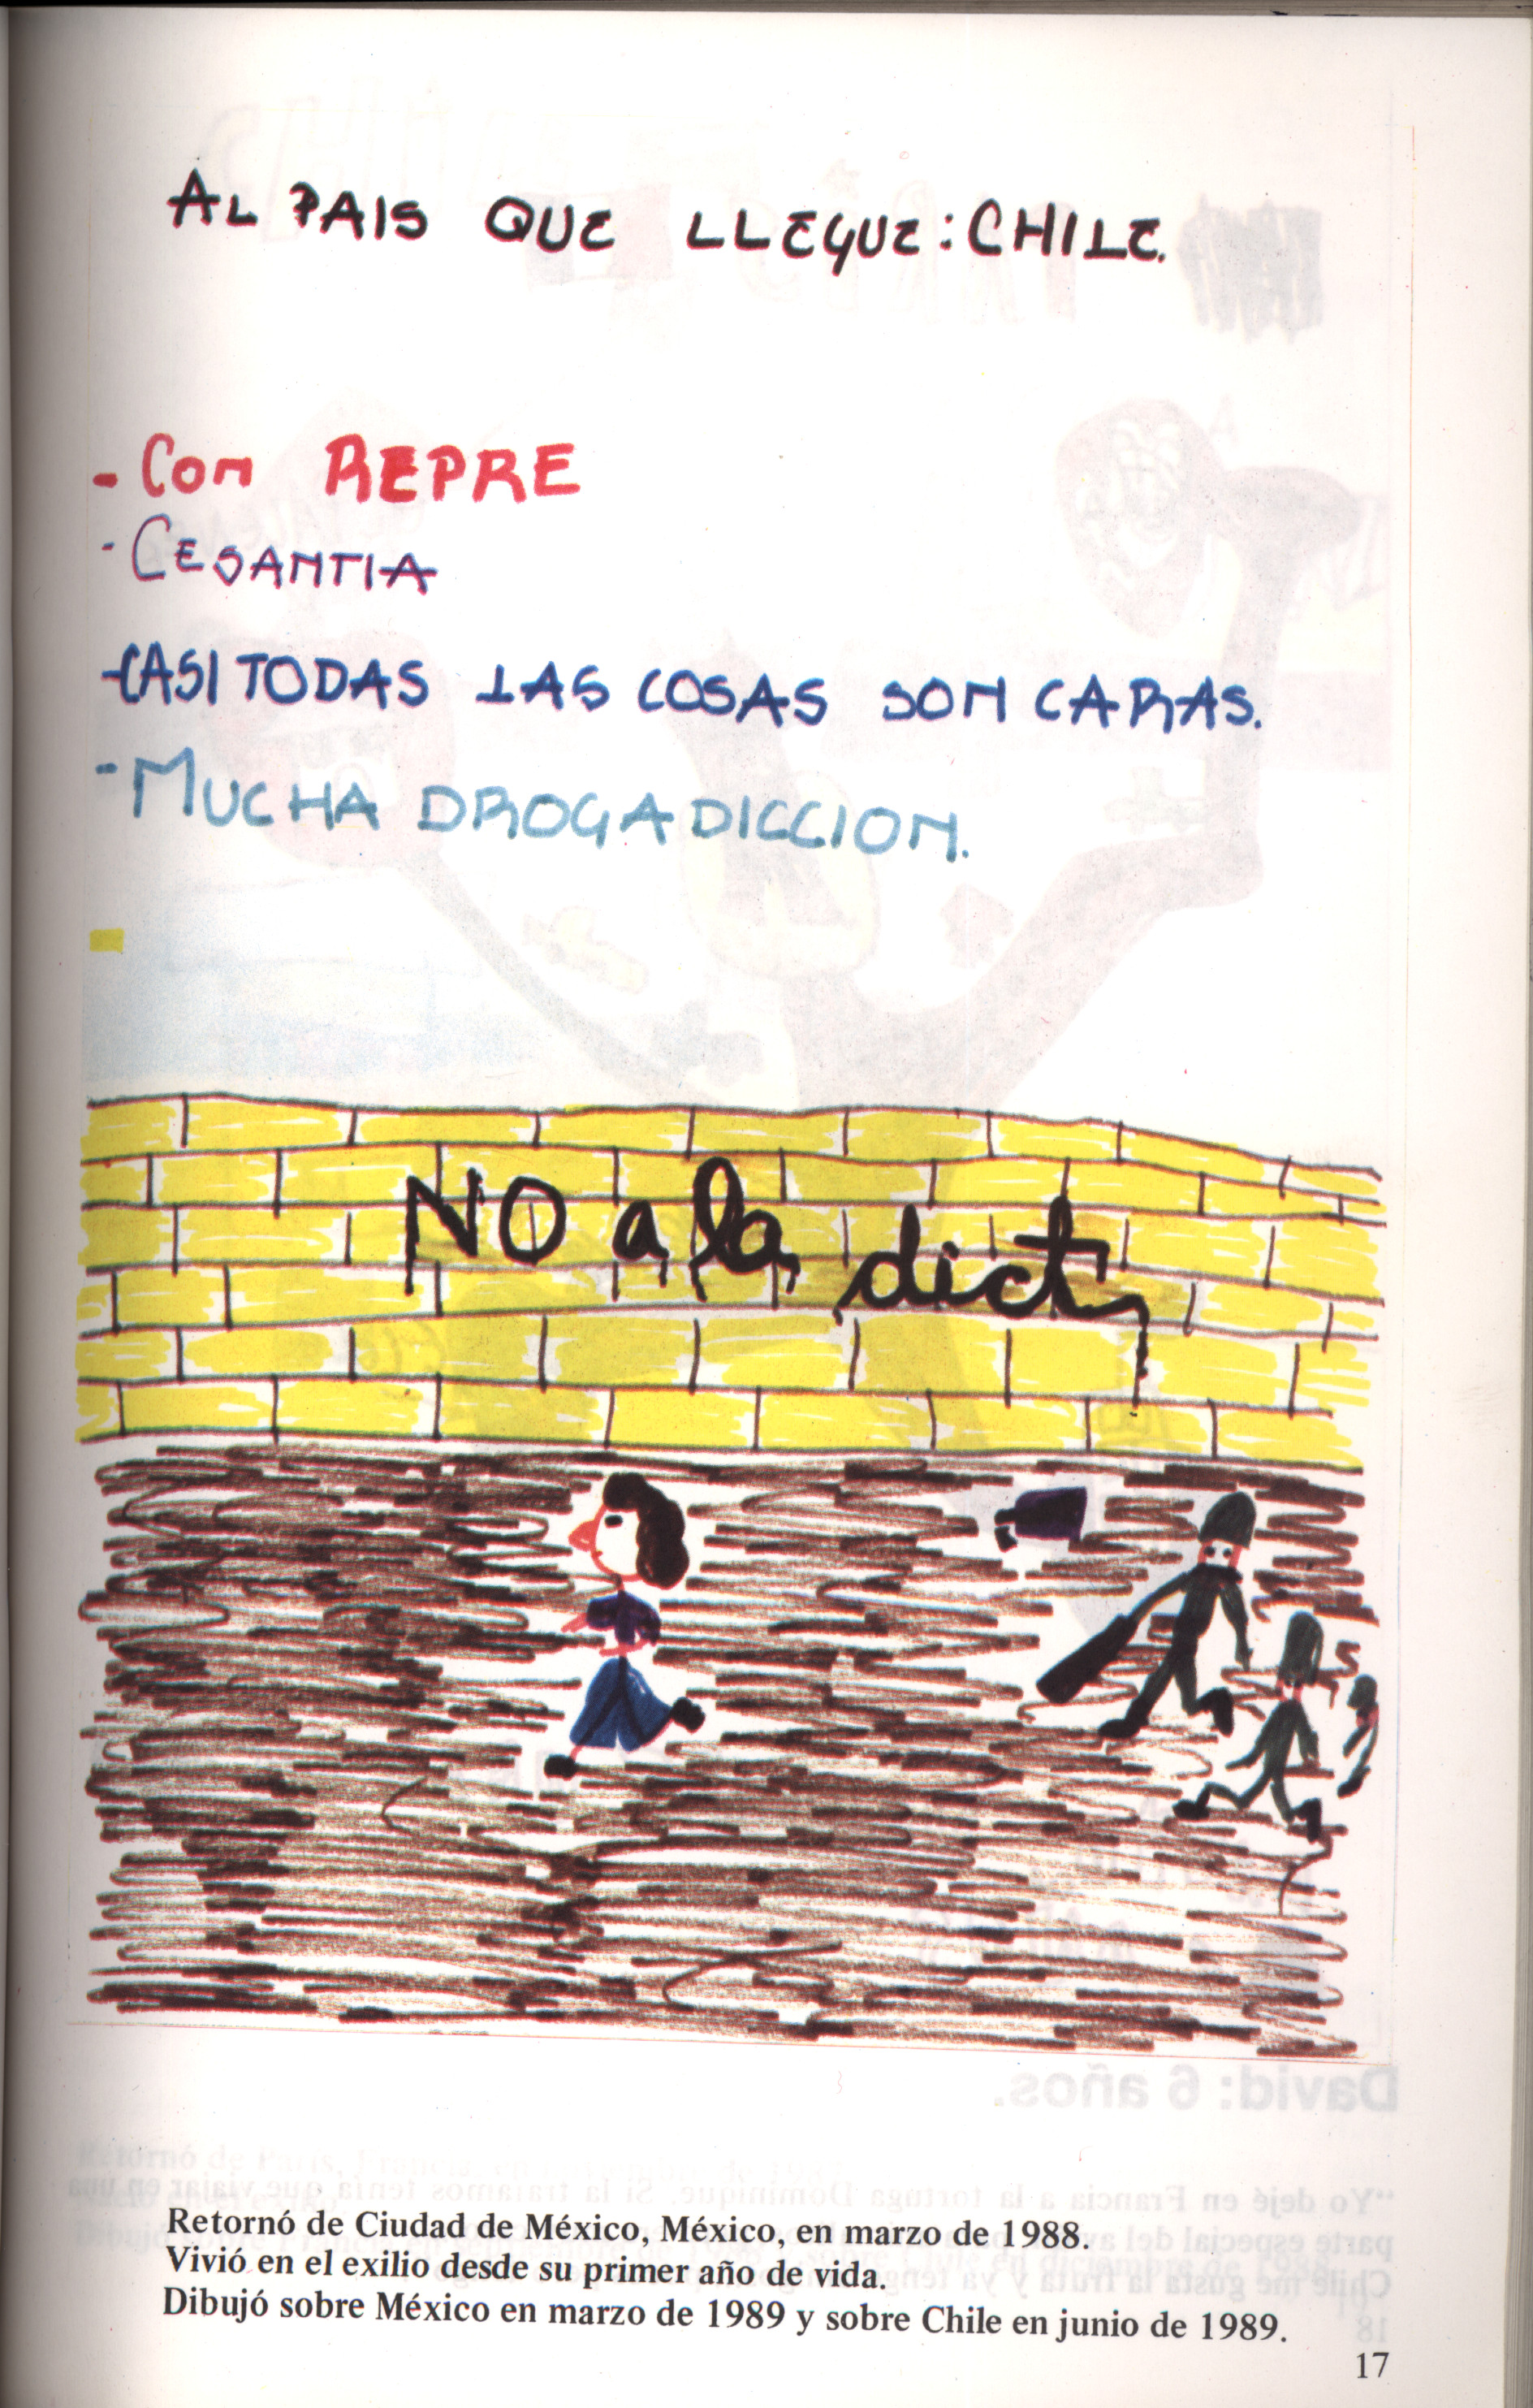 AL PAIS QUE LLEGUE: CHILE.
- CON REPRE
- CESANTIA
- CASI TODAS LAS COSAS SON CARAS.
- MUCHA DROGADICCION.
NO a la dict
Retornó de Ciudad de México, México, en marzo de 1988.
Vivió en el exilio desde su primer año de vida.
Dibujó sobre México en marzo de 1989 y sobre Chile en junio de 1989.
17
David: 6 años.